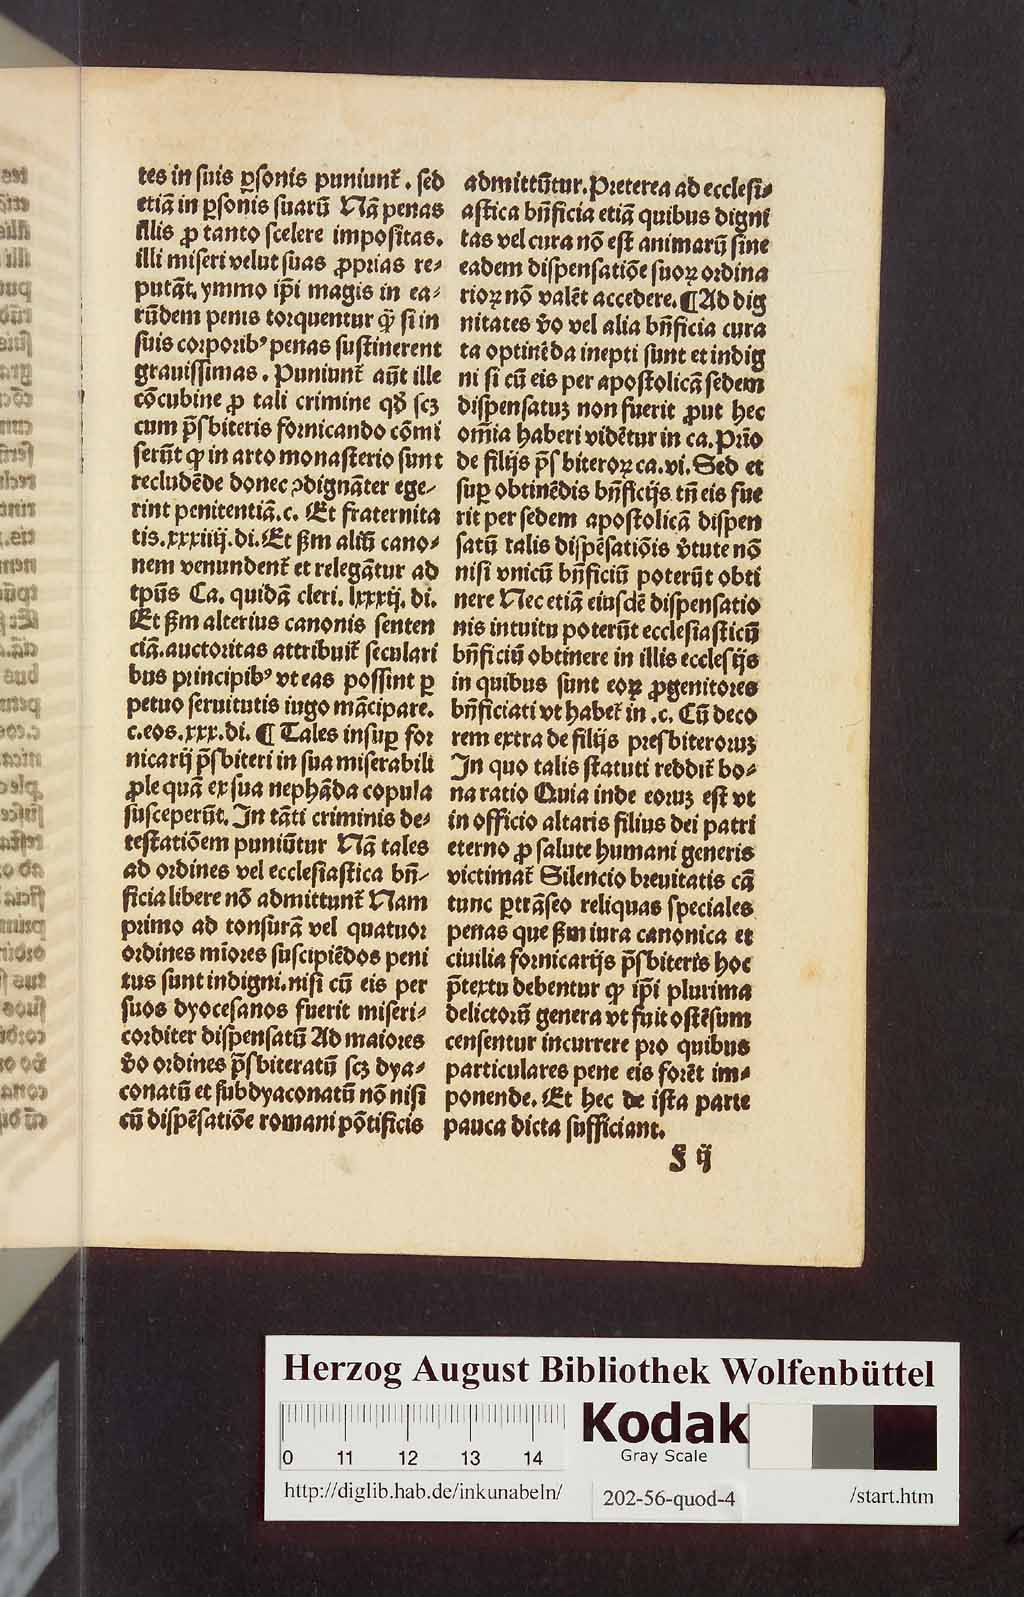 tes in suis ꝑsonis puniunt᷑. sed
etiā in ꝑsonis suarū Nā penas
illis ꝓ tanto scelere impositas.
illi miseri velut suas ꝓprias re-
putāt. ymmo ip̄i magis in ea-
rūdem penis torquentur qͣꝫ si in
suis corporibꝰ penas sustinerent
grauissimas. Puniunt᷑ aūt ille
cōcubine ꝓ tali crimine qđ scꝫ
cum p̄sbiteris fornicando cōmi
serūt ꝙ in arto monasterio sunt
recludēde donec ꝯdignāter ege-
rint penitentiā.c. Et fraternita
tis.xxxiiij.di. Et ẜm aliū cano-
nem venundent᷑ et relegātur ad
tp̄us Ca. quidā cleri. lxxxij. di.
Et ẜm alterius canonis senten
ciā.auctoritas attribuit᷑ seculari
bus principibꝰ vt eas possint ꝑ
petuo seruitutis iugo mācipare.
c.eos.xxx.di. ¶ Tales insuꝑ for
nicarij p̄sbiteri in sua miserabili
ꝓle quā ex sua nephāda copula
susceperūt. In tāti criminis de-
testatiōem puniūtur Nā tales
ad ordines vel ecclesiastica bn̄-
ficia libere nō admittunt᷑ Nam
primo ad tonsurā vel quatuor
ordines miores suscipiēdos peni
tus sunt indigni.nisi cū eis per
suos dyocesanos fuerit miseri-
corditer dispensatū Ad maiores
v̄o ordines p̄sbiteratū scꝫ dya-
conatū et subdyaconatū nō nisi
cū dispēsatiōe romani pōtificis
admittūtur. Preterea ad ecclesi-
astica bn̄ficia etiā quibus digni
tas vel cura nō est animarū sine
eadem dispensatiōe suoꝝ ordina
rioꝝ nō valēt accedere. ¶ Ad dig
nitates v̄o vel alia bn̄ficia cura
ta optinēda inepti sunt et indig
ni si cū eis per apostolicā sedem
dispensatuꝫ non fuerit ꝓut hec
om̄ia haberi vidētur in ca. Prīo
de filijs p̄sbiteroꝝ ca.vi. Sed et
suꝑ obtinēdis bn̄ficijs tn̄ eis fue
rit per sedem apostolicā dispen
satū talis dispēsatiōis v̄tute nō
nisi vnicū bn̄ficiū poterūt obti
nere Nec etiā eiusdē dispensatio
nis intuitu poterūt ecclesiasticū
bn̄ficiū obtinere in illis ecclesijs
in quibus sunt eoꝝ ꝓgenitores
bn̄ficiati vt habet᷑ in .c. Cū deco
rem extra de filijs presbiteroruꝫ
In quo talis statuti reddit᷑ bo-
na ratio Quia inde eoruꝫ est vt
in officio altaris filius dei patri
eterno ꝓ salute humani generis
victimat᷑ Silencio breuitatis cā
tunc ꝑtrāseo reliquas speciales
penas que ẜm iura canonica et
ciuilia fornicarijs p̄sbiteris hoc
p̄textu debentur ꝙ ip̄i plurima
delictorū genera vt fuit ostēsum
censentur incurrere pro quibus
particulares pene eis forēt im-
ponende. Et hec de ista parte
pauca dicta sufficiant.
f ij
Herzog August Bibliothek Wolfenbüttel
0 11 12 13 14
Kodak
Gray Scale
http://diglib.hab.de/inkunabeln/
202-56-quod-4
/start.htm